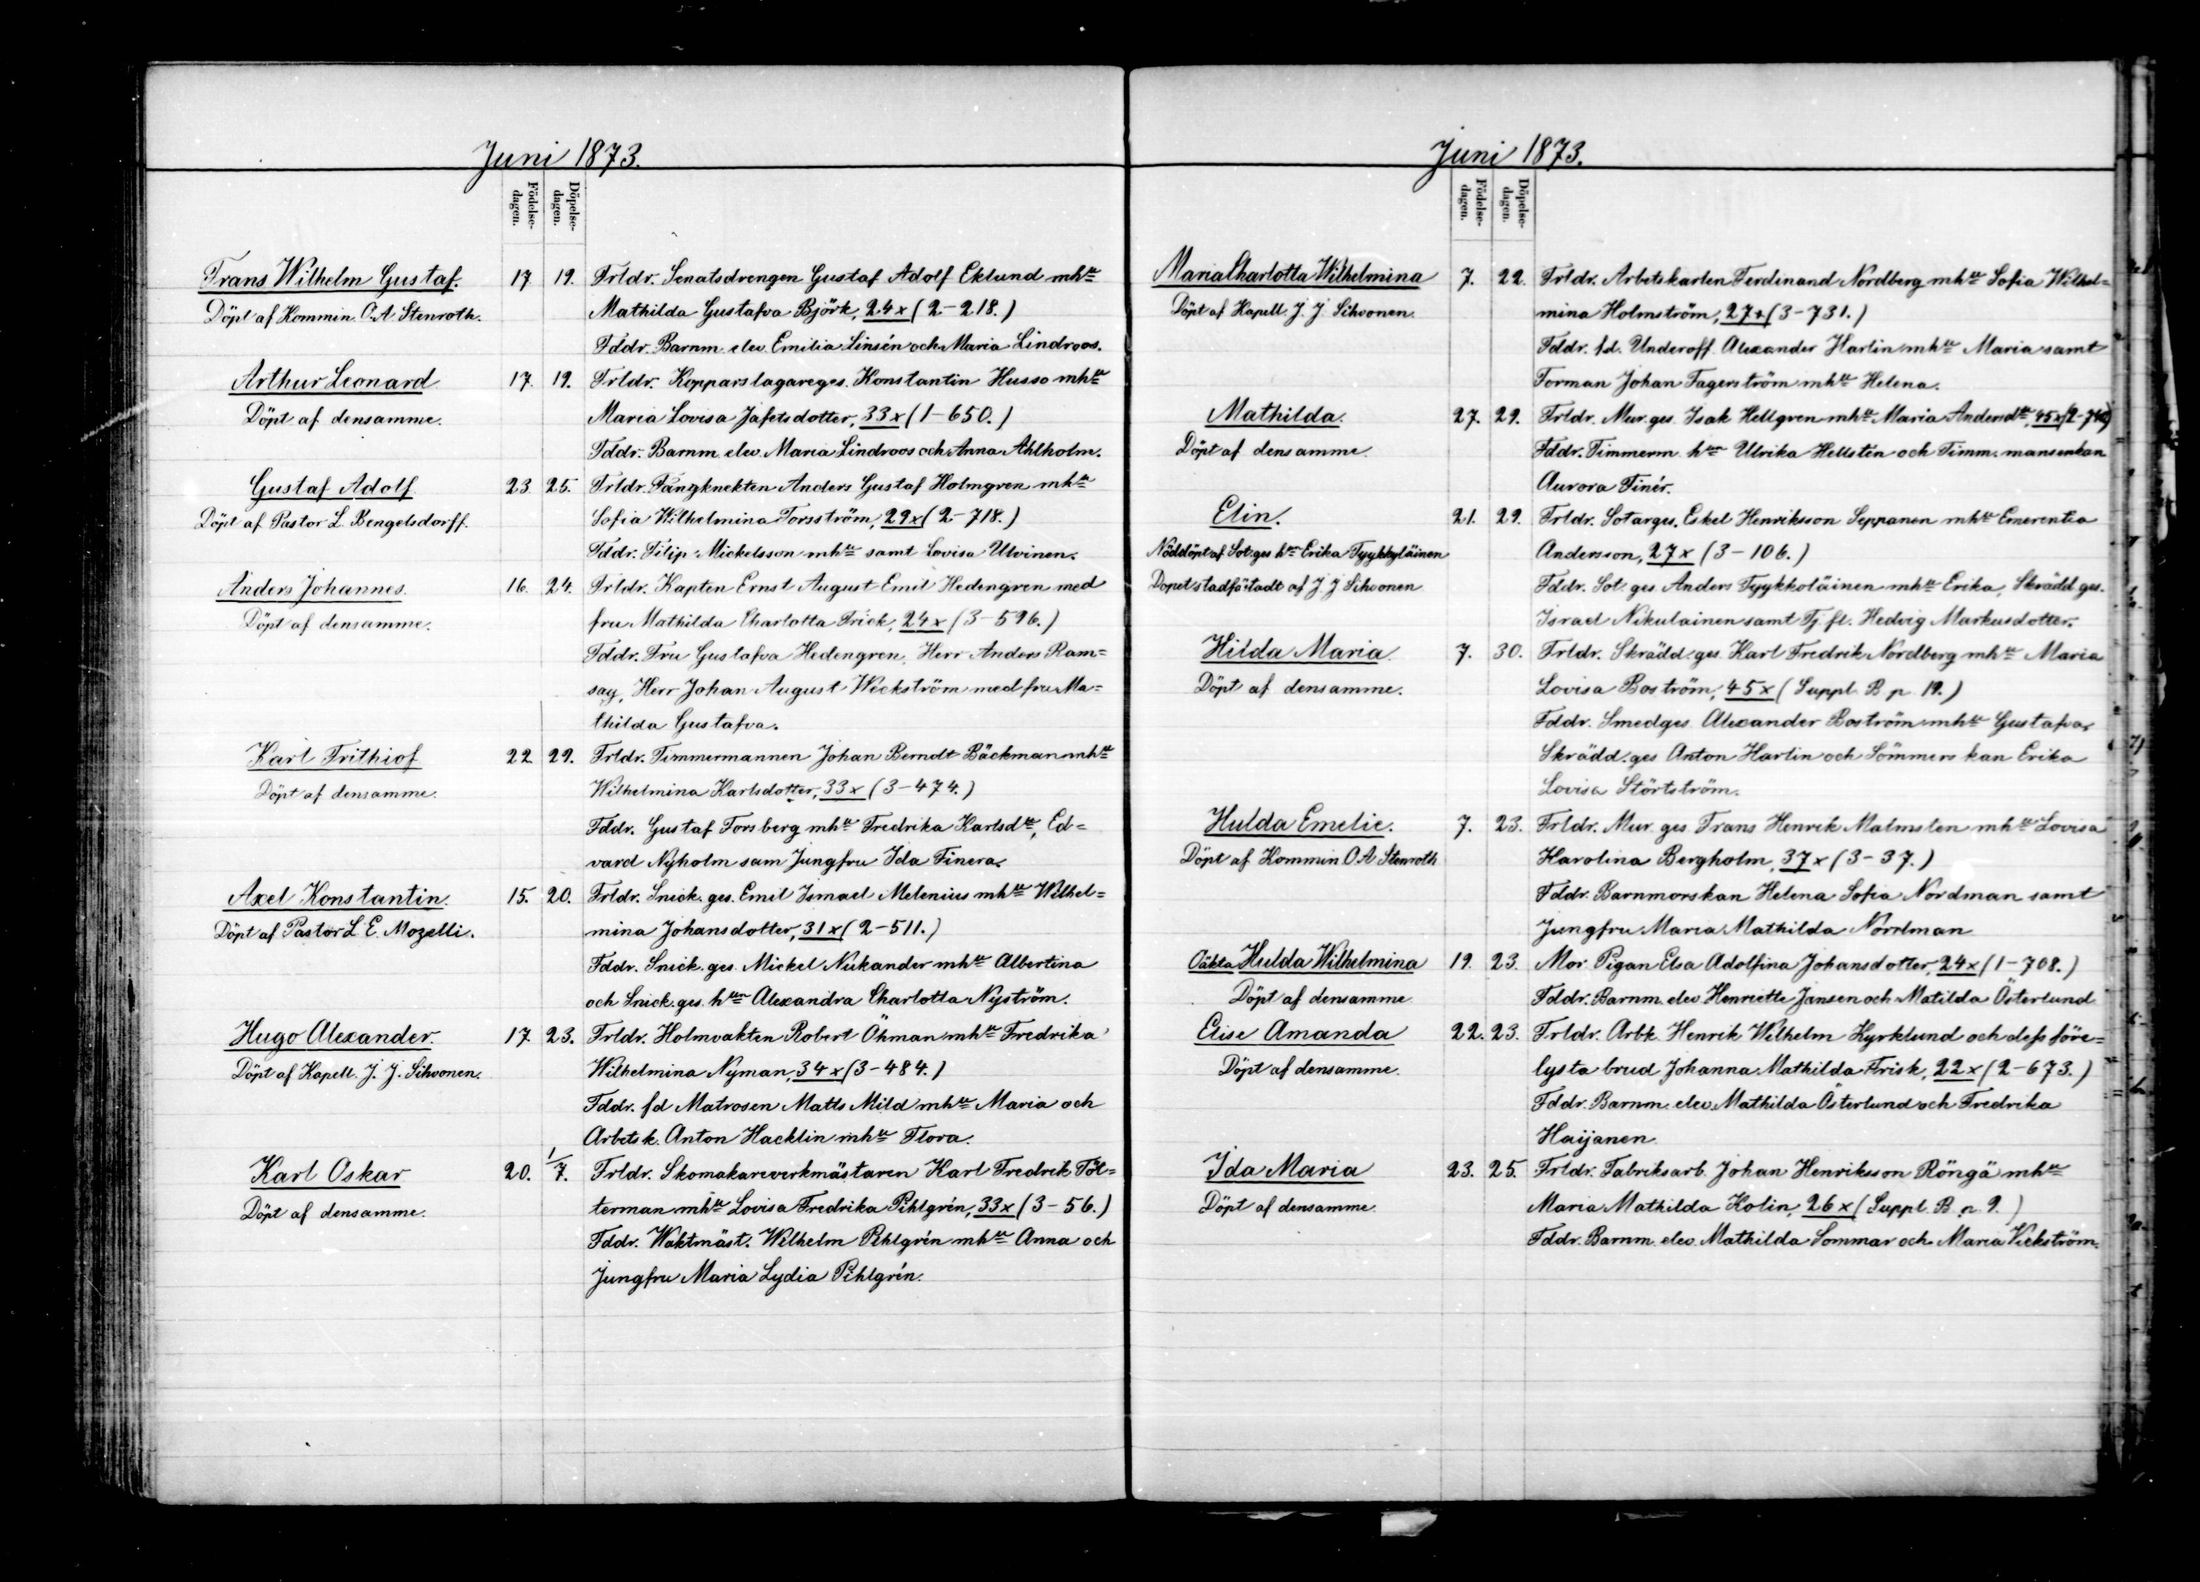 Juni 1873.
Födelse-dagen.
Döpelse-dagen.
Frans Wilhelm Gustaf. 17 19. Frldr. Senatsdrengen Gustaf Adolf Eklund mhu
Döpt af Kommin. O.A. Stenroth. Mathilda Gustafva Björk, 24 x (2-218.)
Fddr. Barnm. elev. Emilia Linsén och Maria Lindroos.
Arthur Leonard 17. 19. Frldr. Kopparslagareges. Konstantin Husso mhu
Döpt af densamme. Maria Lovisa Jafetsdotter, 33 x (1-650.)
Fddr. Barnm. elev. Maria Lindroos och Anna Ahlholm.
Gustaf Adolf 23 25. Frldr. Fångknekten Anders Gustaf Holmgren mhu
Döpt af Pastor L. Bengelsdorff. Sofia Wilhelmina Forsström, 29 x (2-718.)
Fddr. Filip Mickelsson mhu samt Lovisa Ulvinen.
Anders Johannes. 16. 24. Frldr. Kapten Ernst August Emil Hedengren med
Döpt af densamme. fru Mathilda Charlotta Frick, 24 x (3-596.)
Fddr. Fru Gustafva Hedengren, Herr Anders Ram=
say, Herr Johan August Weckström med fru Ma=
thilda Gustafva.
Karl Frithiof 22 29. Frldr. Timmermannen Johan Berndt Bäckman mhu
Döpt af densamme. Wilhelmina Karlsdotter, 33 x (3-474.)
Fddr. Gustaf Forsberg mhu Fredrika Karlsdtr, Ed=
vard Nyholm sam Jungfru Ida Finera.
Axel Konstantin. 15. 20. Frldr. Snick. ges. Emil Ismael Melenius mhu Wilhel=
Döpt af Pastor L. E. Mozelli. mina Johansdotter, 31 x (2-511.)
Fddr. Snick. ges. Mickel Nukander mhu Albertina
och Snick. ges. hun Alexandra Charlotta Nyström.
Hugo Alexander. 17 23. Frldr. Holmvakten Robert Öhman mhu Fredrika
Döpt af Kapell. J. J. Sihvonen. Wilhelmina Nyman, 34 x (3-484.)
Fddr. fd Matrosen Matts Mild mhu Maria och
Arbetsk. Anton Hacklin mhu Flora.
Karl Oskar 20. 1/7. Frldr. Skomakareverkmästaren Karl Fredrik Töt=
Döpt af densamme. terman mhu Lovisa Fredrika Pihlgrén, 33 x (3-56.)
Fddr. Waktmäst. Wilhelm Pihlgrén mhu Anna och
Jungfru Maria Lydia Pihlgrén.
Juni 1873.
Födelse-dagen.
Döpelse-dagen.
Maria Charlotta Wilhelmina 7. 22. Frldr. Arbetskarlen Ferdinand Nordberg mhu Sofia Wilhel=
Döpt af Kapell. J. J. Sihvonen. mina Holmström, 27 x (3-731.)
Fddr. fd. Underoff. Alexander Harlin mhu Maria samt
Forman Johan Fagerström mhu Helena.
Mathilda. 27. 29. Frldr. Mur. ges. Isak Hellgren mhu Maria Andersdtr, 45 x
Döpt af densamme Fddr. Timmerm. hun Ulrika Hellstén och Timm. mansenkan
Aurora Finér.
Elin. 21. 29. Frldr. Sotarges. Eskel Henriksson Seppanen mhu Emerentia
Nöddöpt af Sot. ges hun Erika Tyykkyläinen Andersson, 27 x (3-106.)
Dopet stadfästadt af J. J Sihvonen Fddr. Sot. ges Anders Tyykkoläinen mhu Erika, Skrädd. ges.
Israel Nikulainen samt Tj. fl. Hedvig Markusdotter.
Hilda Maria. 7. 30. Frldr. Skrädd. ges. Karl Fredrik Nordberg mhu Maria
Döpt af densamme. Lovisa Boström, 45 x (Suppl. B p. 19.)
Fddr. Smedges. Alexander Boström mhu Gustafva,
Skrädd. ges Anton Harlin och Sömmerskan Erika
Lovisa Störtström.
Hulda Emelie. 7. 23. Frldr. Mur. ges. Frans Henrik Malmsten mhu Lovisa
Döpt af Kommin. O.A Stenroth Karolina Bergholm, 37 x (3-37.)
Fddr. Barnmorskan Helena Sofia Nordman samt
Jungfru Maria Mathilda Nordman
Oäkta Hulda Wilhelmina 19. 23. Mor. Pigan Elsa Adolfina Johansdotter, 24 x (1-708.)
Döpt af densamme Fddr. Barnm. elev. Henriette Jansen och Matilda Österlund
Elise Amanda 22. 23. Frldr. Arbk. Henrik Wilhelm Kyrklund och dess före=
Döpt af densamme. lysta brud Johanna Mathilda Frisk, 22 x (2-673.)
Fddr. Barnm. elev. Mathilda Österlund och Fredrika
Haijanen.
Ida Maria 23. 25. Frldr. Fabriksarb. Johan Henriksson Röngä mhu
Döpt af densamme. Maria Mathilda Kolin, 26 x (Suppl. B. p. 9.)
Fddr. Barnm. elev. Mathilda Sommar och Maria Vickström.